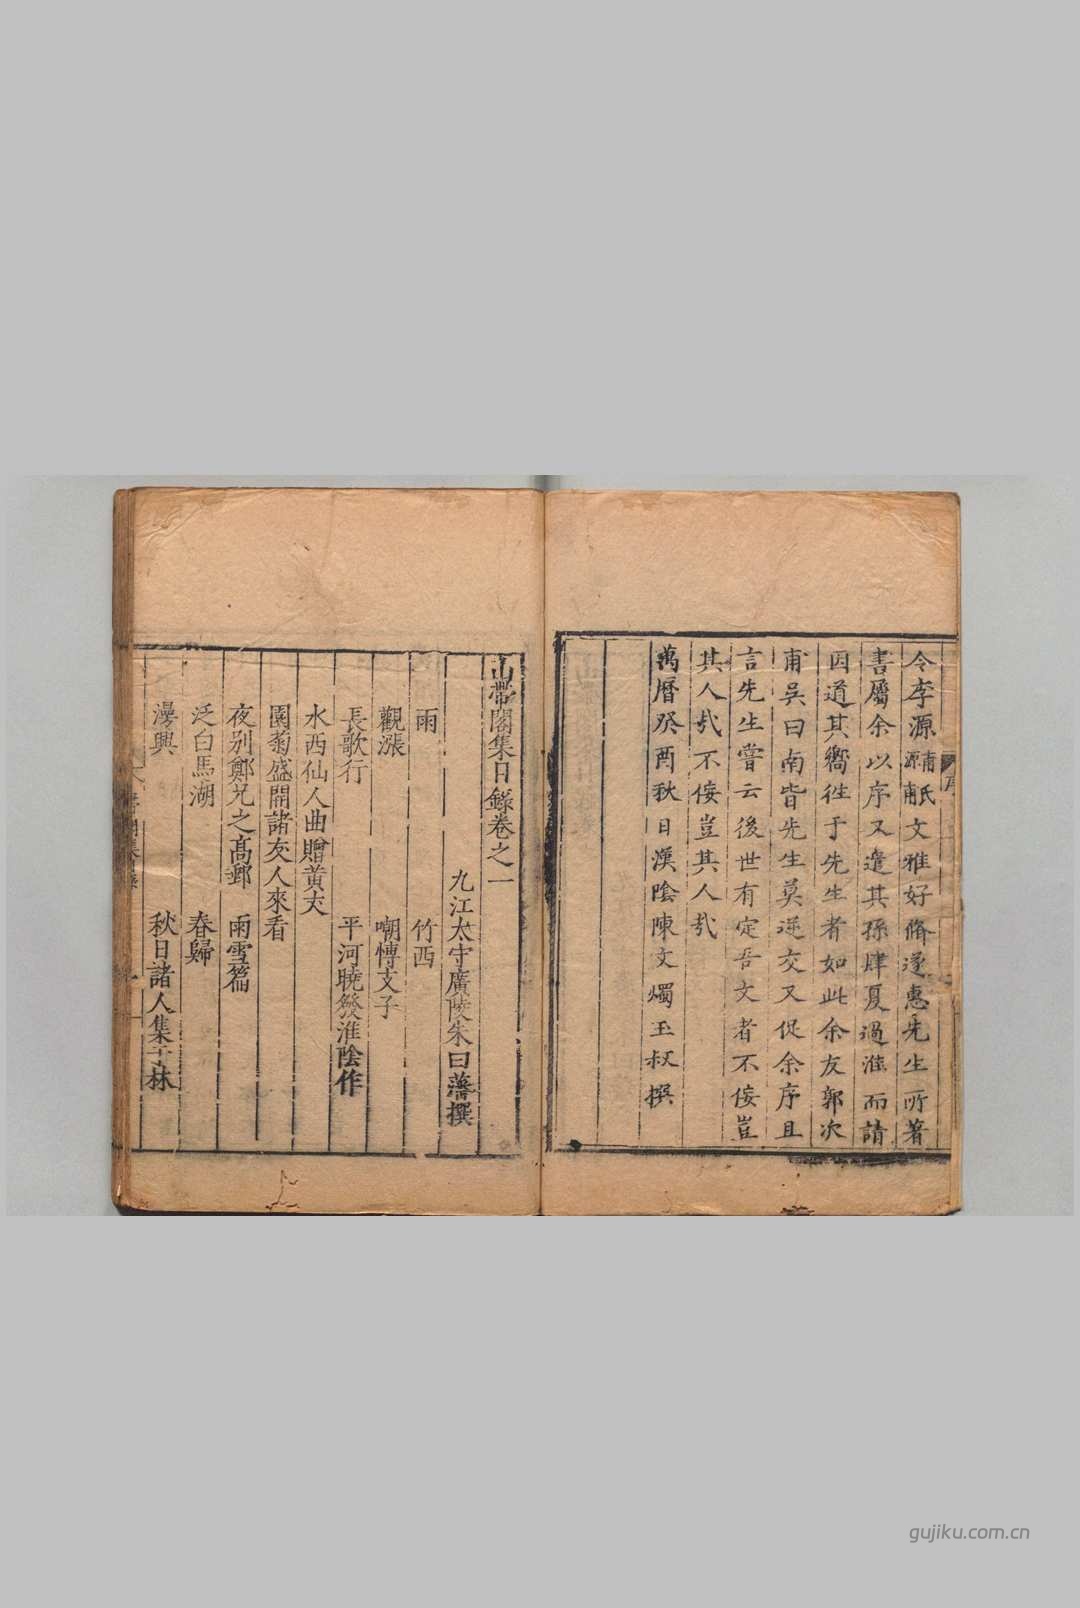 令李源甫源甫氏文雅好脩遂惠先生所著
書屬余以序又遣其孫肆夏過淮而請
因道其嚮徃于先生者如此余友郭次
甫吳曰南皆先生莫逆交又促余序且
言先生嘗云後世有定吾文者不佞豈
其人㦲不佞豈其人㦲
萬曆癸酉秋日漢陰陳文燭玉叔撰
山帶閣集目錄卷之一
九江太守廣陵朱曰藩撰
雨 竹西
觀漲 嘲博文子
長歌行 平河曉發淮陰作
水西仙人曲贈黃夫
園菊盛開諸友人來看
夜别鄭兄之髙郵 雨雪篇
泛白馬湖 春歸
漫興 秋日諸人集于林
gujiku.com.cn